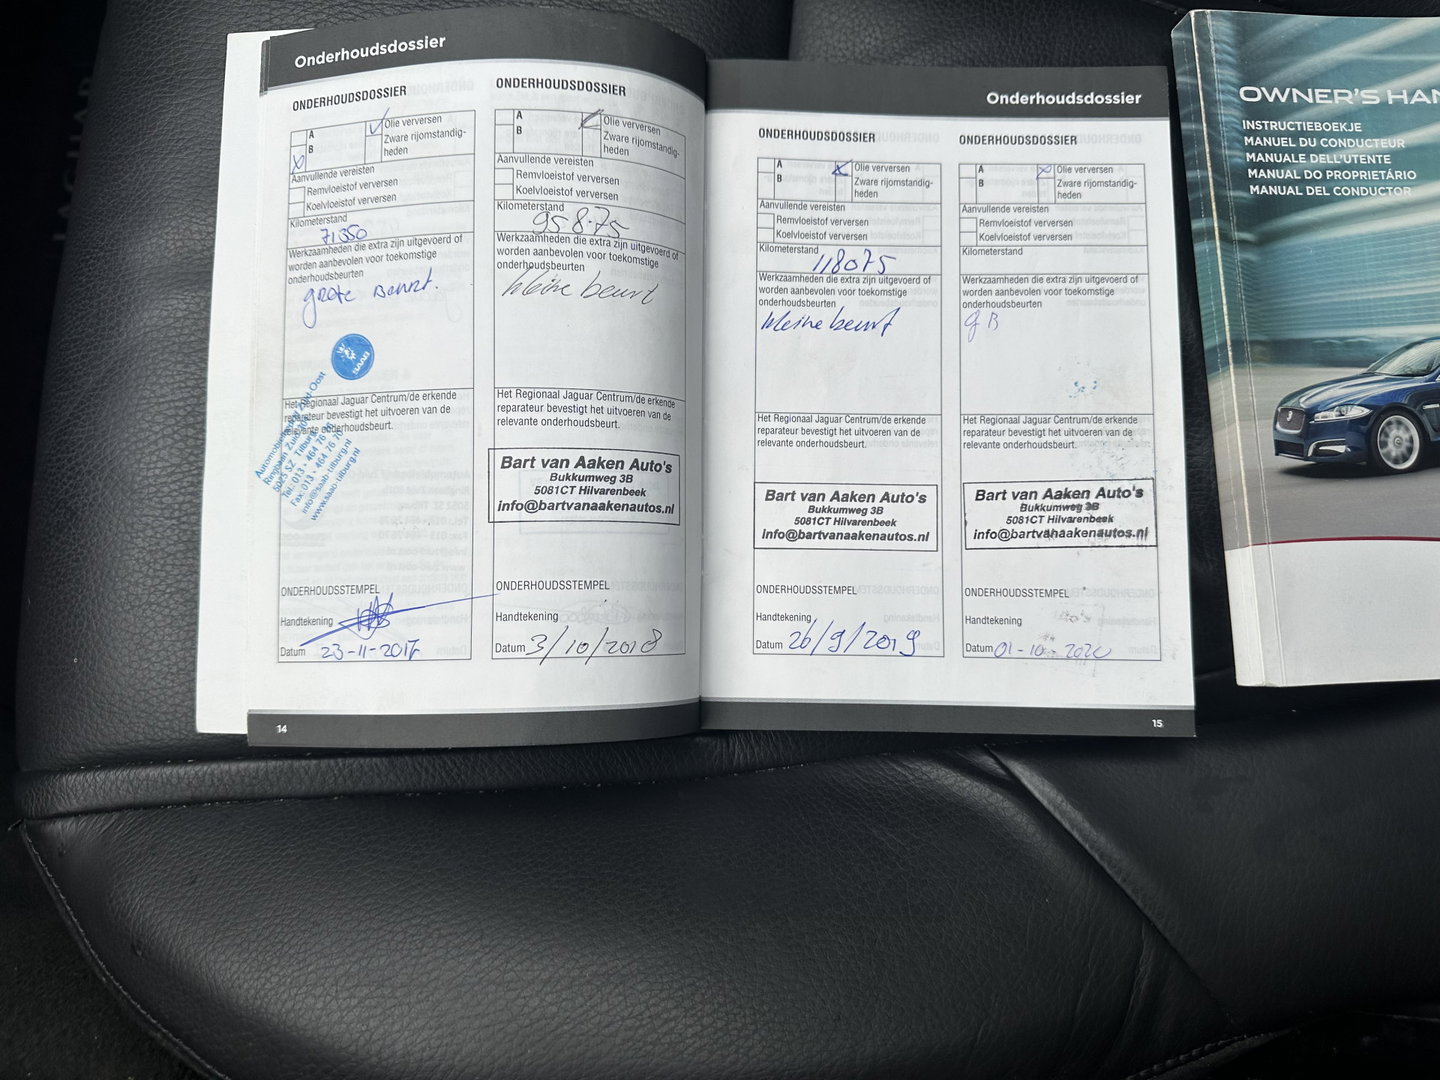 Onderhoudsdossier
ONDERHOUDSDOSSIER
A
B
Olie verversen
Zware rijomstandig-
heden
Aanvullende vereisten
Remvloeistof verversen
Koelvloeistof verversen
Kilometerstand
71350
Werkzaamheden die extra zijn uitgevoerd of
worden aanbevolen voor toekomstige
onderhoudsbeurten
grote Beurt.
SAAB
Het Regionaal Jaguar Centrum/de erkende
reparateur bevestigt het uitvoeren van de
relevante onderhoudsbeurt.
Automobielbedrijf Zuid-Oost
Ringbaan Zuid
5025 SZ Tilburg
Tel: 013 - 464 76
Fax: 013 - 464 76 76
info@saab-tilburg.nl
www.saab-tilburg.nl
ONDERHOUDSSTEMPEL
Handtekening
Datum 23-11-2017
14
ONDERHOUDSDOSSIER
A
B
Olie verversen
Zware rijomstandig-
heden
Aanvullende vereisten
Remvloeistof verversen
Koelvloeistof verversen
Kilometerstand
958.75
Werkzaamheden die extra zijn uitgevoerd of
worden aanbevolen voor toekomstige
onderhoudsbeurten
kleine beurt
Het Regionaal Jaguar Centrum/de erkende
reparateur bevestigt het uitvoeren van de
relevante onderhoudsbeurt.
Bart van Aaken Auto's
Bukkumweg 3B
5081CT Hilvarenbeek
info@bartvanaakenautos.nl
ONDERHOUDSSTEMPEL
Handtekening
Datum 3/10/2018
Onderhoudsdossier
ONDERHOUDSDOSSIER
A
B
Olie verversen
Zware rijomstandig-
heden
Aanvullende vereisten
Remvloeistof verversen
Koelvloeistof verversen
Kilometerstand
118075
Werkzaamheden die extra zijn uitgevoerd of
worden aanbevolen voor toekomstige
onderhoudsbeurten
kleine beurt
Het Regionaal Jaguar Centrum/de erkende
reparateur bevestigt het uitvoeren van de
relevante onderhoudsbeurt.
Bart van Aaken Auto's
Bukkumweg 3B
5081CT Hilvarenbeek
info@bartvanaakenautos.nl
ONDERHOUDSSTEMPEL
Handtekening
Datum 26/9/2019
ONDERHOUDSDOSSIER
A
B
Olie verversen
Zware rijomstandig-
heden
Aanvullende vereisten
Remvloeistof verversen
Koelvloeistof verversen
Kilometerstand
Werkzaamheden die extra zijn uitgevoerd of
worden aanbevolen voor toekomstige
onderhoudsbeurten
g B
Het Regionaal Jaguar Centrum/de erkende
reparateur bevestigt het uitvoeren van de
relevante onderhoudsbeurt.
Bart van Aaken Auto's
Bukkumweg 3B
5081CT Hilvarenbeek
info@bartvanaakenautos.nl
ONDERHOUDSSTEMPEL
Handtekening
Datum 01-10-2020
15
OWNER'S HAN
INSTRUCTIEBOEKJE
MANUEL DU CONDUCTEUR
MANUALE DELL'UTENTE
MANUAL DO PROPRIETÁRIO
MANUAL DEL CONDUCTOR
JAGUAR